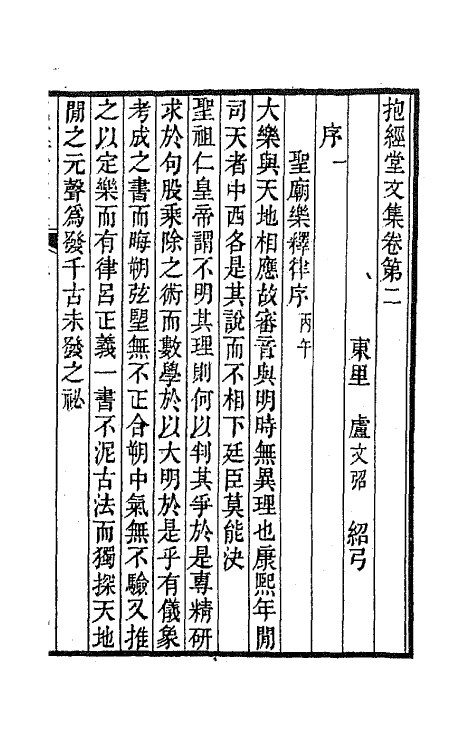 抱經堂文集卷第二
東里 盧文弨 紹弓
序一
聖廟樂釋律序丙午
大樂與天地相應故審音與明時無異理也康熙年閒
司天者中西各是其說而不相下廷臣莫能決
聖祖仁皇帝謂不明其理則何以判其爭於是專精研
求於句股乘除之術而數學於以大明於是乎有儀象
考成之書而晦朔弦朢無不正合朔中氣無不驗又推
之以定樂而有律呂正義一書不泥古法而獨探天地
閒之元聲爲發千古未發之祕